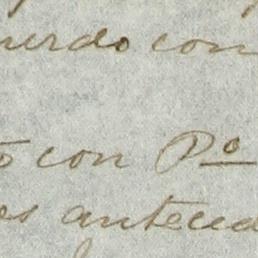 uerdo con
con Pº
os anteced